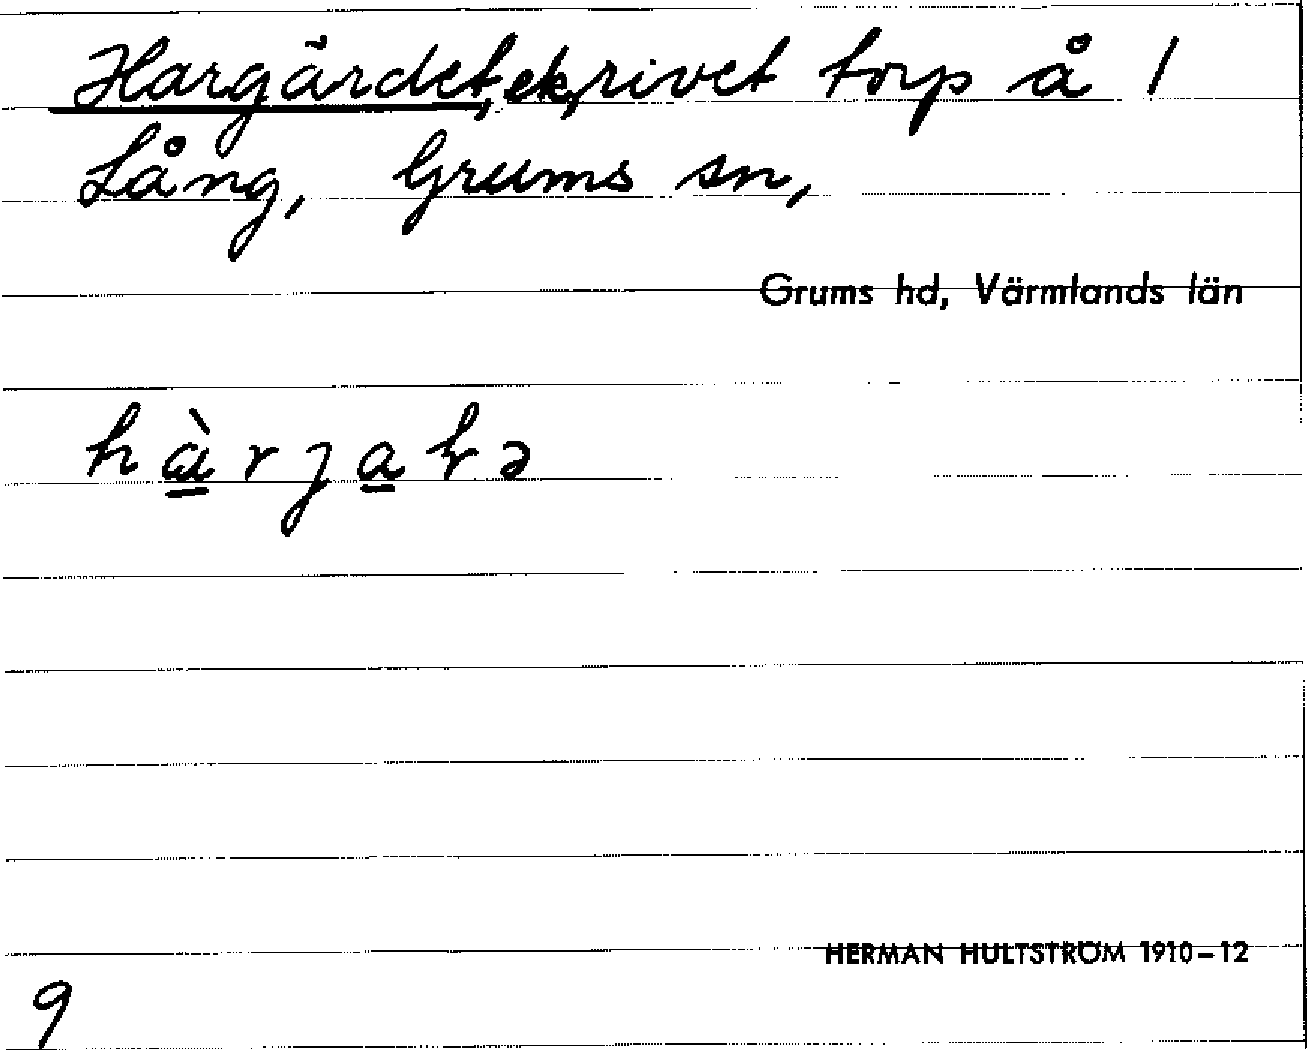 Hargärdet, ek, rivet torp å 1
Lång, Grums sn,
Grums hd, Värmlands län
HERMAN HULTSTRÖM 1910–12
9